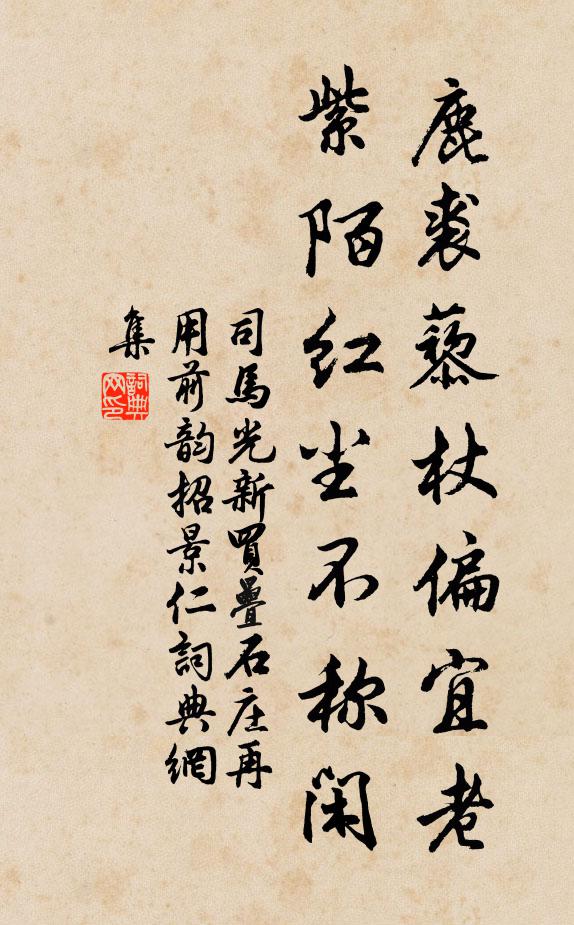 鹿裘藜杖偏宜老
紫陌红尘不称闲
司馬光新買疊石庄再
用前韵招景仁詞典網
集
詞典
网印